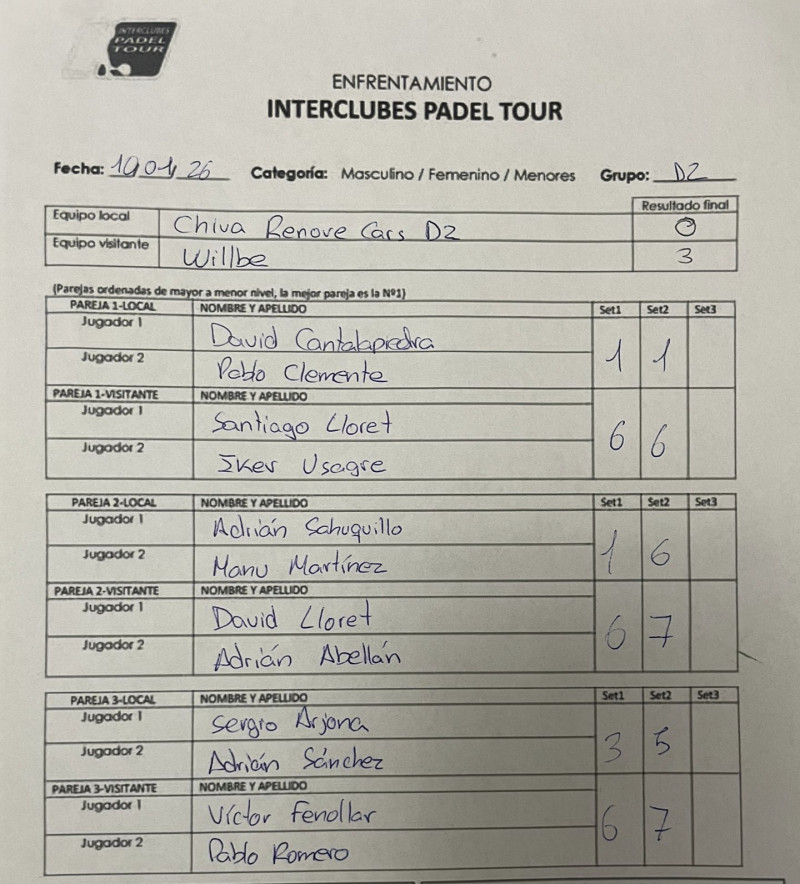 INTERCLUBES
PADEL
TOUR
ENFRENTAMIENTO
INTERCLUBES PADEL TOUR
Fecha: 19 01 26 Categoría: Masculino / Femenino / Menores Grupo: D2
Resultado final
Equipo local Chiva Renove Cars D2 0
Equipo visitante Willbe 3
(Parejas ordenadas de mayor a menor nivel, la mejor pareja es la Nº1)
PAREJA 1-LOCAL NOMBRE Y APELLIDO Set1 Set2 Set3
Jugador 1 David Cantalapiedra
Jugador 2 Pablo Clemente 1 1
PAREJA 1-VISITANTE NOMBRE Y APELLIDO
Jugador 1 Santiago Lloret
Jugador 2 Iker Usagre 6 6
PAREJA 2-LOCAL NOMBRE Y APELLIDO Set1 Set2 Set3
Jugador 1 Adrián Sahuquillo
Jugador 2 Manu Martínez 1 6
PAREJA 2-VISITANTE NOMBRE Y APELLIDO
Jugador 1 David Lloret
Jugador 2 Adrián Abellán 6 7
PAREJA 3-LOCAL NOMBRE Y APELLIDO Set1 Set2 Set3
Jugador 1 Sergio Arjona
Jugador 2 Adrián Sánchez 3 5
PAREJA 3-VISITANTE NOMBRE Y APELLIDO
Jugador 1 Víctor Fenollar
Jugador 2 Pablo Romero 6 7